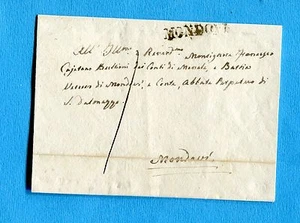 MONDOVI
All' Ill.mo e Rever.dmo Monsignore Francesco
Gaetano dei Conti di e
Vescovo di Mondovì, e Conte, Abbate Perpetuo di
S. Dalmazzo
Mondovì